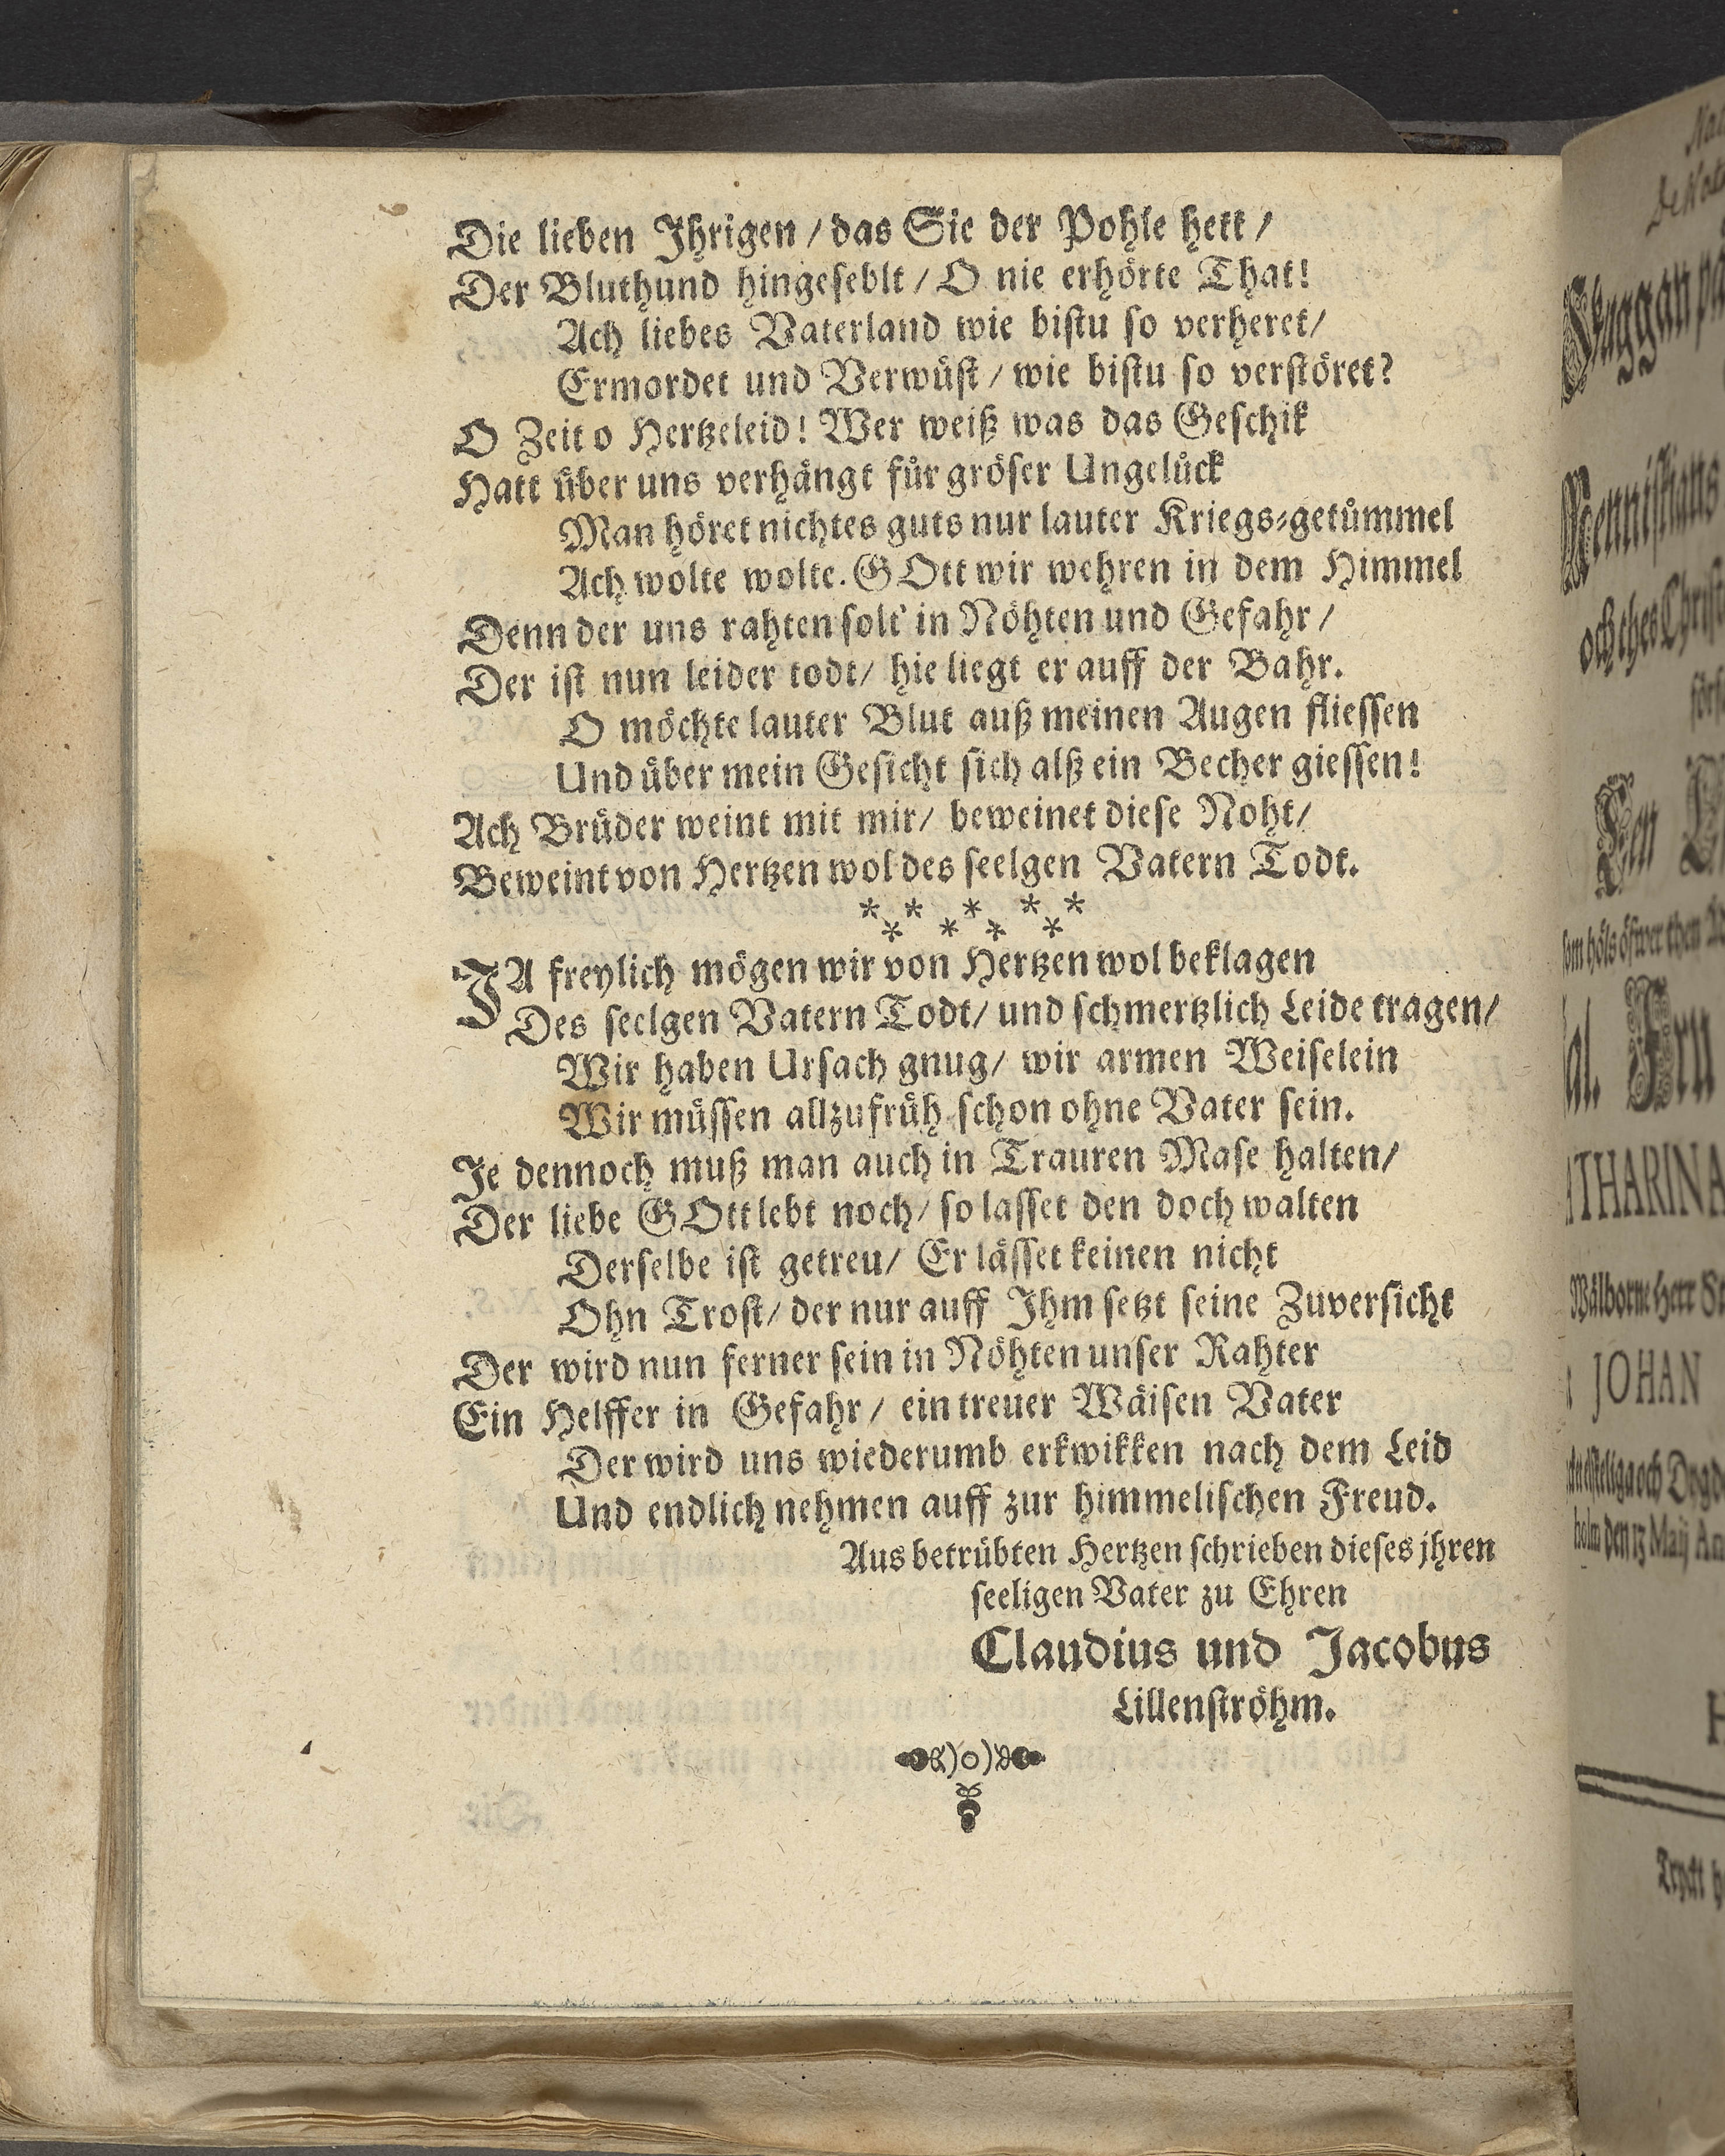 Die lieben Ihrigen / das Sie der Pohle hett /
Der Bluthund hingeseblt / O nie erhörte That!
Ach liebes Vaterland wie bistu so verheret /
Ermordet und Verwüst / wie bistu so verstöret?
O Zeit o Hertzeleid! Wer weiß was das Geschik
Hatt über uns verhängt für gröser Ungelück
Man höret nichtes guts nur lauter Kriegs-getümmel
Ach wolte wolte. GOtt wir wehren in dem Himmel
Denn der uns rahten solt' in Nöhten und Gefahr /
Der ist nun leider todt / hie liegt er auff der Bahr.
O möchte lauter Blut auß meinen Augen fliessen
Und über mein Gesicht sich alß ein Becher giessen!
Ach Brüder weint mit mir / beweinet diese Noht /
Beweint von Hertzen wol des seelgen Vatern Todt.
* * * * * * * * *
JA freylich mögen wir von Hertzen wol beklagen
Des seelgen Vatern Todt / und schmertzlich Leide tragen /
Wir haben Ursach gnug / wir armen Weiselein
Wir müssen allzufrüh schon ohne Vater sein.
Je dennoch muß man auch in Trauren Mase halten /
Der liebe GOtt lebt noch / so lasset den doch walten
Derselbe ist getreu / Er lässet keinen nicht
Ohn Trost / der nur auff Ihm setzt seine Zuversicht
Der wird nun ferner sein in Nöhten unser Rahter
Ein Helffer in Gefahr / ein treuer Wäisen Vater
Der wird uns wiederumb erkwikken nach dem Leid
Und endlich nehmen auff zur himmelischen Freud.
Aus betrübten Hertzen schrieben dieses jhren
seeligen Vater zu Ehren
Claudius und Jacobus
Lillenströhm.
och thes
Wälborne Herr
JOHAN
och
den 17 Maij